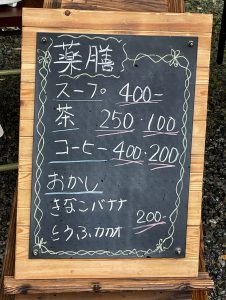 薬膳
スープ 400-
茶 250・100
コーヒー 400・200
おかし
きなこバナナ
とうふカカオ 200-